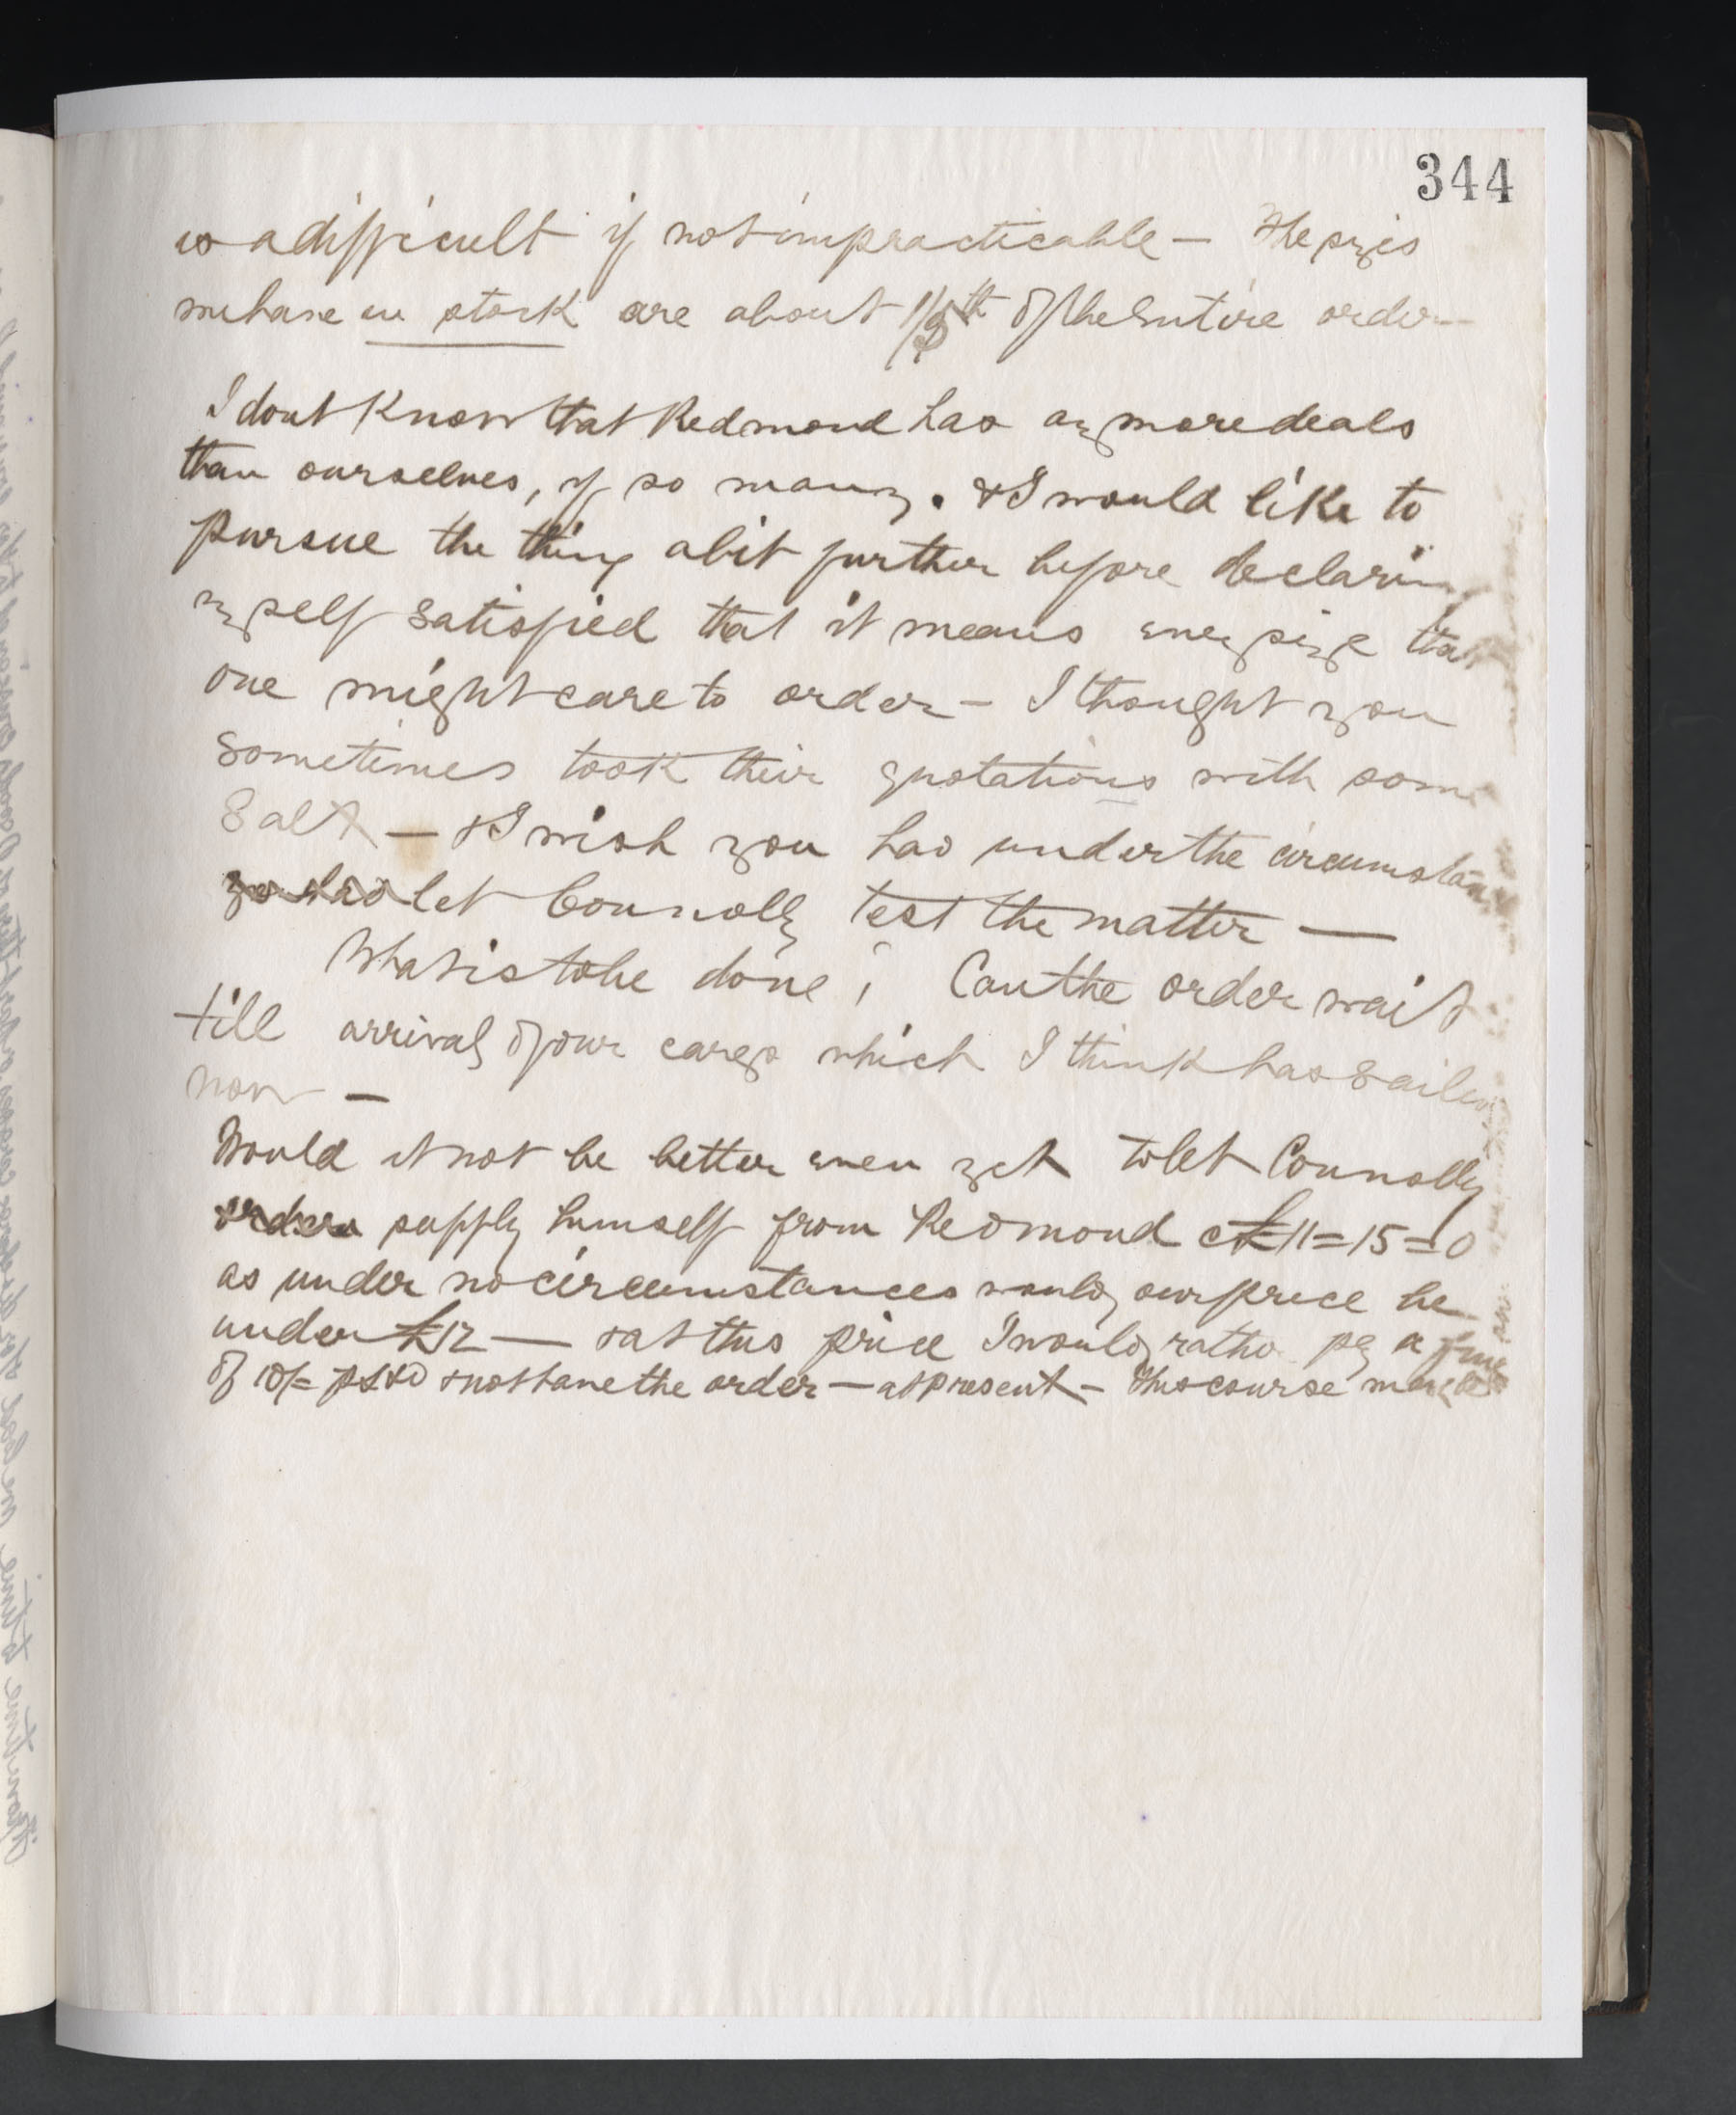 344
is a difficult if not impracticable — The sizes
we have in stock are about 1/8th of the entire order —
I dont Know that Redmond has any more deals
than ourselves, if so many. & I would like to
pursue the thing a bit further before declaring
myself satisfied that it means every size that
one might care to order — I thought you
sometimes took their quotations with some
Salt — & I wish you had under the circumstances
let Connolly test the matter —
What is to be done ? Can the order wait
till arrival of our cargo which I think has sailed
now —
Would it not be better even yet to let Connolly
orders supply himself from Redmond @ £11=15=0
as under no circumstances would our price be
under £12 — & at this price I would rather pay a fine
of 10/= & not have the order — at present — This course